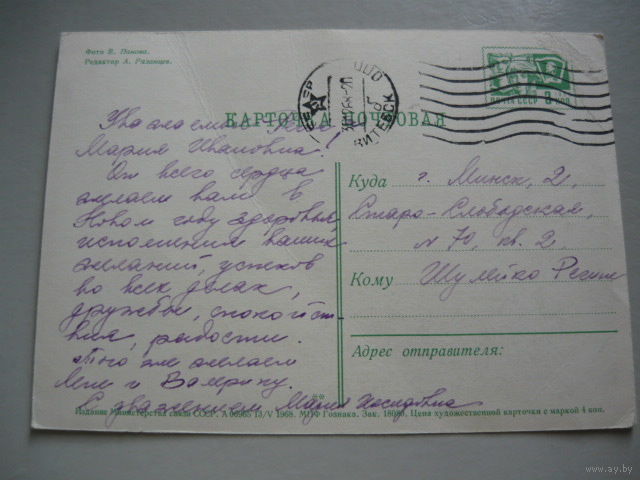 Фото В. Панова.
Редактор А. Рязанцев.
ПОЧТА СССР 3 коп.
ВИТЕБСК
КАРТОЧКА ПОЧТОВАЯ
Уважаемые
Мария Ивановна!
От всего сердца
желаем вам в
Новом году здоровья,
исполнения ваших
желаний, успехов
во всех делах,
дружбы, спокойст
вия, радости.
Того же желаем
и
С уважением Мария
Куда г. Минск, 2,
Старо-Слободская,
№ 70, кв. 2
Кому Шулейко
Адрес отправителя:
Издание Министерства связи СССР. А 06965 13/V 1968. МПФ Гознака. Зак. 18080. Цена художественной карточки с маркой 4 коп.
www.ay.by